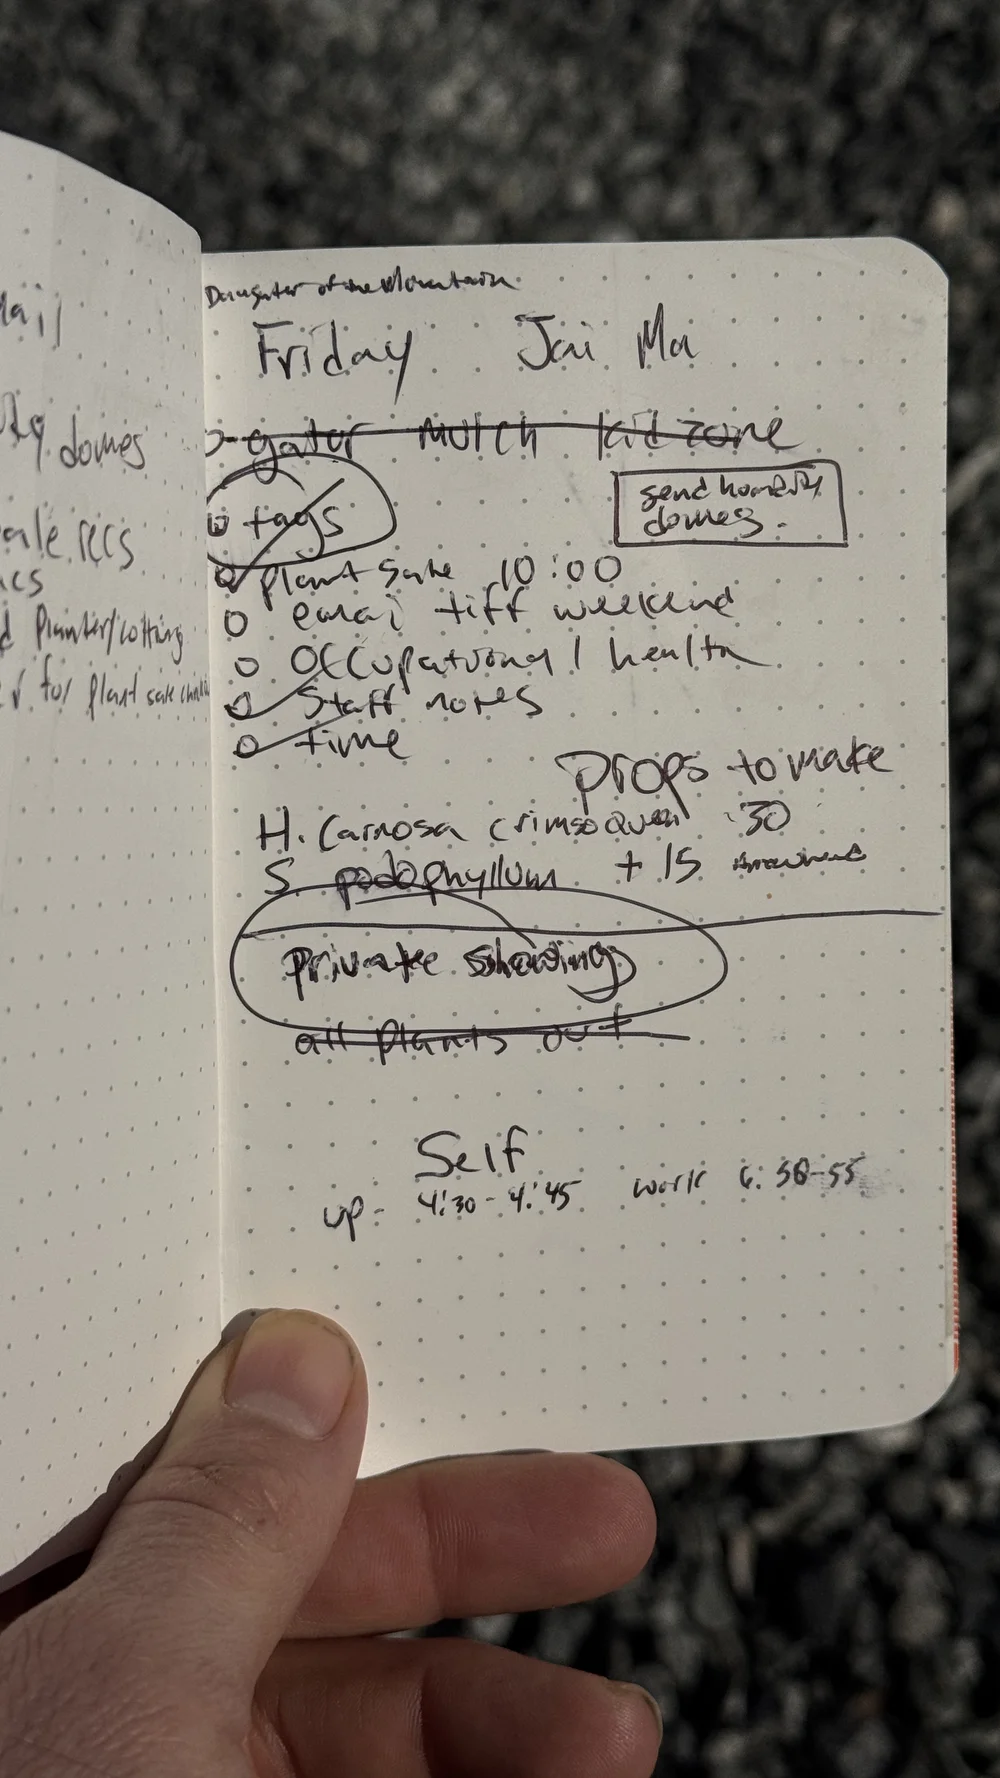 ail
domes
ale recs
ics
d Planter/cotting
r for plant sale
Daughter of the Mountain
Friday Jai Ma
gator mulch kid zone
tags
send humidity
domes.
plant sale 10:00
emai tiff weekend
Occupational health
Staff notes
time
Props to make
H. Carnosa crimso Queen 30
S. podophyllum + 15 Arrowhead
private showing
all plants out
Self
up - 4:30 - 4:45 work 6:50-55